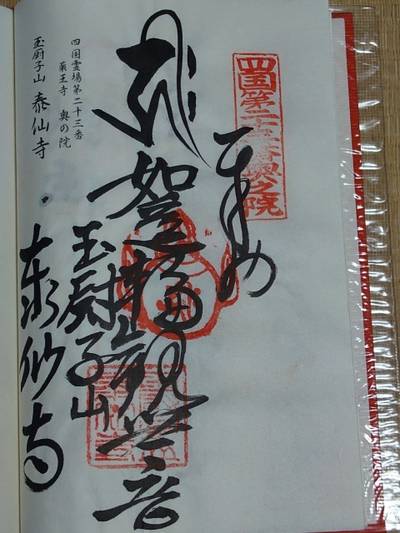 四国第二十三番奥之院
奉拝
如意輪観世音
玉厨子山
泰仙寺
四国霊場第二十三番
薬王寺 奥の院
玉厨子山 泰仙寺